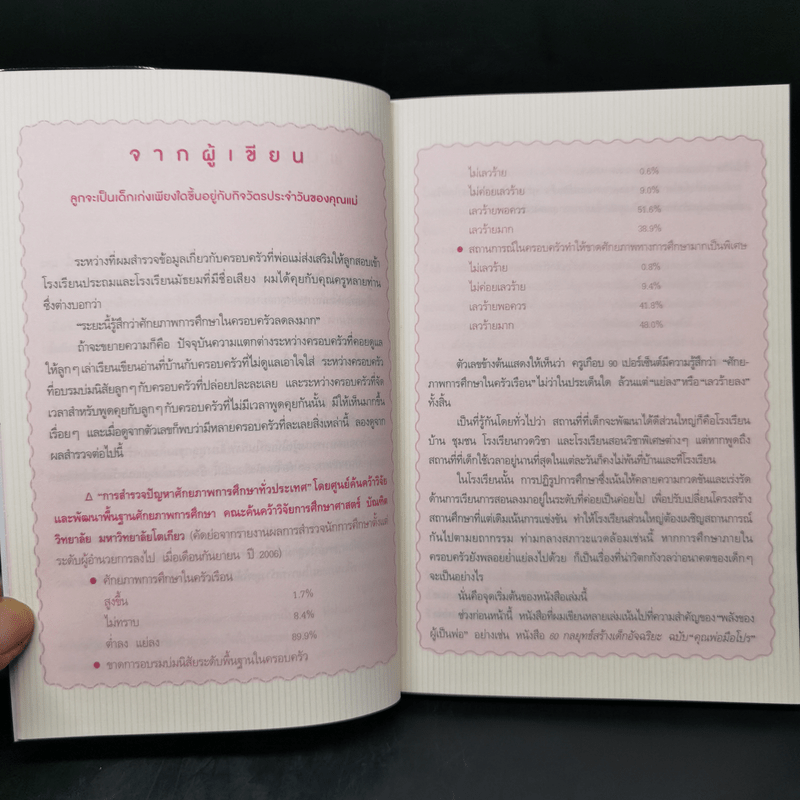 จากผู้เขียน
ลูกจะเป็นเด็กเก่งเพียงใดขึ้นอยู่กับกิจวัตรประจำวันของคุณแม่
ระหว่างที่ผมสำรวจข้อมูลเกี่ยวกับครอบครัวที่พ่อแม่ส่งเสริมให้ลูกสอบเข้า
โรงเรียนประถมและโรงเรียนมัธยมที่มีชื่อเสียง ผมได้คุยกับคุณครูหลายท่าน
ซึ่งต่างบอกว่า
"ระยะนี้รู้สึกว่าศักยภาพการศึกษาในครอบครัวลดลงมาก"
ถ้าจะขยายความก็คือ ปัจจุบันความแตกต่างระหว่างครอบครัวที่คอยดูแล
ให้ลูกๆ เล่าเรียนเขียนอ่านที่บ้านกับครอบครัวที่ไม่ดูแลเอาใจใส่ ระหว่างครอบครัว
ที่อบรมบ่มนิสัยลูกๆ กับครอบครัวที่ปล่อยปละละเลย และระหว่างครอบครัวที่จัด
เวลาสำหรับพูดคุยกับลูกๆ กับครอบครัวที่ไม่มีเวลาพูดคุยกันนั้น มีให้เห็นมากขึ้น
เรื่อยๆ และเมื่อดูจากตัวเลขก็พบว่ามีหลายครอบครัวที่ละเลยสิ่งเหล่านี้ ลองดูจาก
ผลสำรวจต่อไปนี้
Δ "การสำรวจปัญหาศักยภาพการศึกษาทั่วประเทศ" โดยศูนย์ค้นคว้าวิจัย
และพัฒนาพื้นฐานศักยภาพการศึกษา คณะค้นคว้าวิจัยการศึกษาศาสตร์ บัณฑิต
วิทยาลัย มหาวิทยาลัยโตเกียว (คัดย่อจากรายงานผลการสำรวจนักการศึกษาตั้งแต่
ระดับผู้อำนวยการลงไป เมื่อเดือนกันยายน ปี 2006)
● ศักยภาพการศึกษาในครัวเรือน
สูงขึ้น 1.7%
ไม่ทราบ 8.4%
ต่ำลง แย่ลง 89.9%
● ขาดการอบรมบ่มนิสัยระดับพื้นฐานในครอบครัว
ไม่เลวร้าย 0.6%
ไม่ค่อยเลวร้าย 9.0%
เลวร้ายพอควร 51.6%
เลวร้ายมาก 38.9%
● สถานการณ์ในครอบครัวทำให้ขาดศักยภาพทางการศึกษามากเป็นพิเศษ
ไม่เลวร้าย 0.8%
ไม่ค่อยเลวร้าย 9.4%
เลวร้ายพอควร 41.8%
เลวร้ายมาก 48.0%
ตัวเลขข้างต้นแสดงให้เห็นว่า ครูเกือบ 90 เปอร์เซ็นต์มีความรู้สึกว่า "ศักย-
ภาพการศึกษาในครัวเรือน" ไม่ว่าในประเด็นใด ล้วนแต่ "แย่ลง" หรือ "เลวร้ายลง"
ทั้งสิ้น
เป็นที่รู้กันโดยทั่วไปว่า สถานที่ที่เด็กจะพัฒนาได้ดีส่วนใหญ่ก็คือโรงเรียน
บ้าน ชุมชน โรงเรียนกวดวิชา และโรงเรียนสอนวิชาพิเศษต่างๆ แต่หากพูดถึง
สถานที่ที่เด็กใช้เวลาอยู่นานที่สุดในแต่ละวันก็คงไม่พ้นที่บ้านและที่โรงเรียน
ในโรงเรียนนั้น การปฏิรูปการศึกษาซึ่งเน้นให้คลายความกวดขันและเร่งรัด
ด้านการเรียนการสอนลงมาอยู่ในระดับที่ค่อยเป็นค่อยไป เพื่อปรับเปลี่ยนโครงสร้าง
สถานศึกษาที่แต่เดิมเน้นการแข่งขัน ทำให้โรงเรียนส่วนใหญ่ต้องเผชิญสถานการณ์
กันไปตามยถากรรม ท่ามกลางสภาวะแวดล้อมเช่นนี้ หากการศึกษาภายใน
ครอบครัวยังพลอยย่ำแย่ลงไปด้วย ก็เป็นเรื่องที่น่าวิตกกังวลว่าอนาคตของเด็กๆ
จะเป็นอย่างไร
นั่นคือจุดเริ่มต้นของหนังสือเล่มนี้
ช่วงก่อนหน้านี้ หนังสือที่ผมเขียนหลายเล่มเน้นไปที่ความสำคัญของ "พลังของ
ผู้เป็นพ่อ" อย่างเช่น หนังสือ 60 กลยุทธ์สร้างเด็กอัจฉริยะ ฉบับ "คุณพ่อมือโปร"